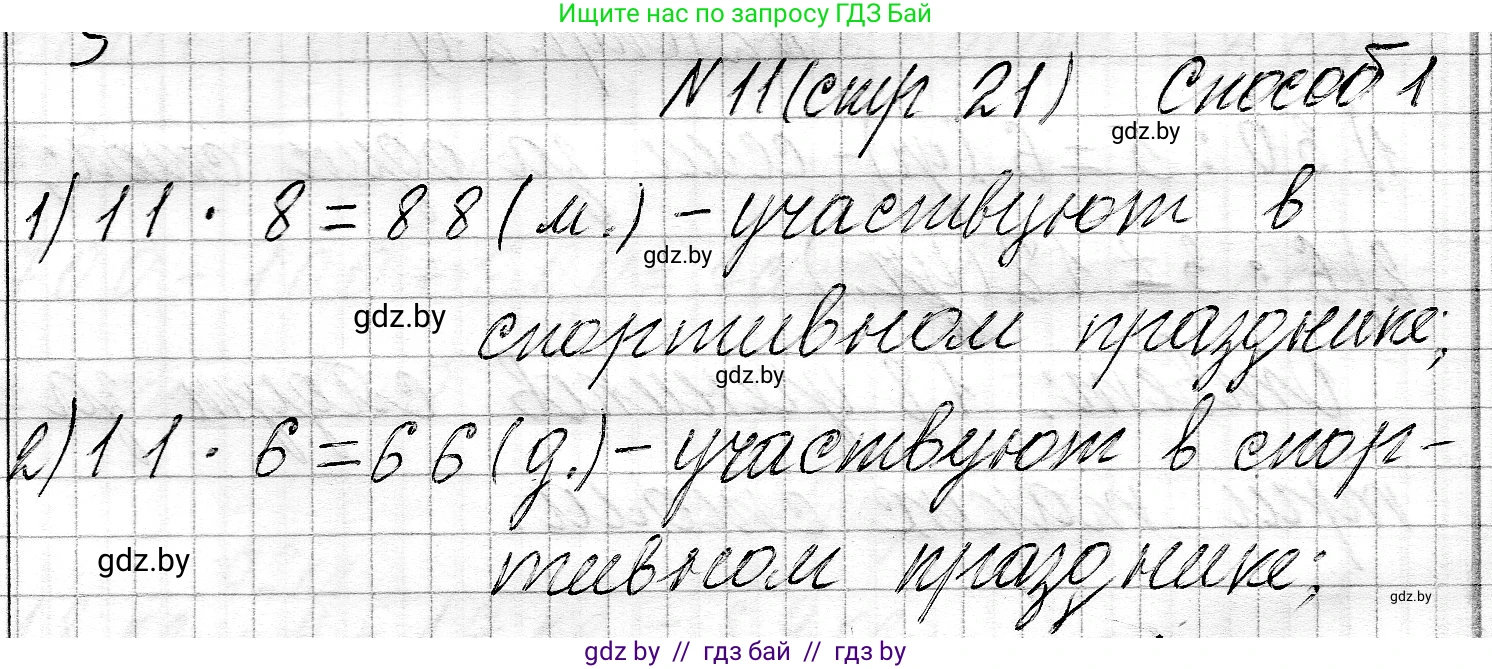 Ищите нас по запросу ГДЗ Бай
N 11 (стр 21) Способ 1
gdz.by
1) 11 · 8 = 88 (м.) – участвуют в
gdz.by
gdz.by
спортивном празднике;
gdz.by
2) 11 · 6 = 66 (д.) – участвуют в спор-
gdz.by
тивном празднике;
gdz.by
gdz.by // гдз бай // гдз by